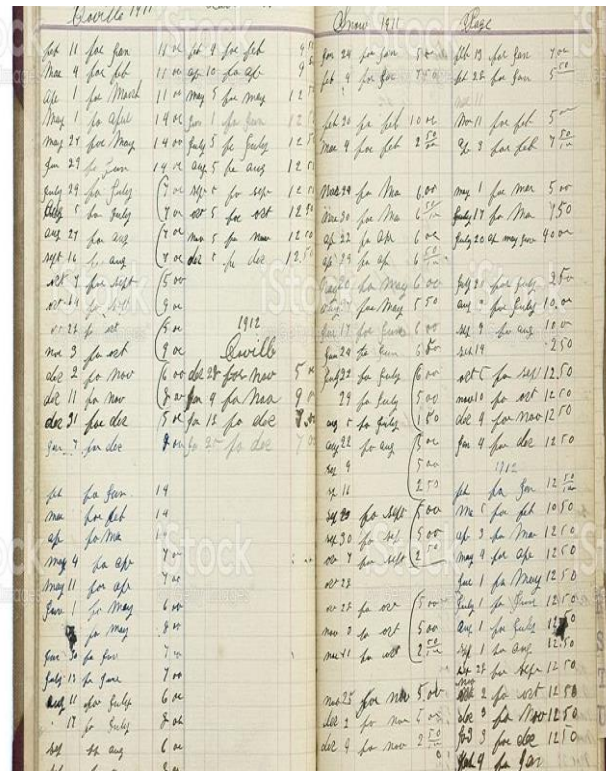 Orville 1911
feb 11 for Jan 11 00
Mar 4 for feb 11 00
Apr 1 for March 11 00
May 1 for April 14 00
May 27 for May 14 00
Jun 29 for Jun 14 00
July 29 for July 7 00
Aug 5 for July 7 00
aug 27 for aug 7 00
sept 16 for aug 7 00
oct 7 for sept 5 00
oct 14 9 00
oct 28 for oct 5 00
nov 3 for oct 9 00
dec 2 for nov 6 00
dec 11 for nov 8 00
dec 31 for dec 5 00
Jan 7 for dec 9 00
feb for Jan 14
mar for feb 14
apr for Ma 14
may 4 for apr 7 00
may 11 for apr 7 00
June 1 for May 6 00
for may 8 00
Jun 30 for Jun 7 00
July 13 for June 7 00
aug 11 for July 6 00
17 for July 8 00
sep for aug 6 00
feb 9 for feb 9
ap 10 for ap 9
may 5 for may 12 50
Jun 1 for Jun 12 50
July 5 for July 12 50
aug 5 for aug 12 50
sep 5 for sep 12 50
oct 5 for oct 12 50
nov 5 for nov 12 50
dec 5 for dec 12.50
1912
Orville
dec 28 for nov 5 00
Jan 9 for Nov 9 0
Ja 13 for dec
Ja 25 for dec 7 00
Snow 1911
Jan 24 for Jan 5 00
feb 9 for Jan 7 50
feb 20 for feb 10 00
Mar 9 for feb 2 50
Mar 29 for Ma 6.00
Mar 30 for Ma 6 50
ap 22 for Ap 6 00
ap 29 for ap 6 50
May 20 for May 6 00
for May 5 50
Jun 17 for June 6 00
Jun 24 for Jun 6 50
July 22 for July 6 00
29 for July 5 00
aug 5 for July 1 50
aug 22 for aug 5 00
sep 9 5 00
sep 16 2 50
sep 23 for sept 5 00
sep 30 for sep 5 00
oct 7 for sept 2 50
oct 28
oct 28 for oct 5 00
nov 3 for oct 5 00
nov 11 for oct 2 50
nov 25 for nov 5 00
dec 2 for nov 5 00
dec 9 for nov 2 50
Place
feb 13 for Jan 7 00
feb 28 for Jan 5 50
Mar 11 for feb 5 00
Ap 3 for feb 7 50
may 1 for mar 5 00
July 17 for Ma 7.50
July 20 ap may June 40 00
July 20 for July 2 50
aug for July 10.00
sep 2 for aug 10.00
sep 19 2 50
oct 5 for sep 12.50
nov 10 for oct 12 50
dec 9 for nov 12 50
Jan 4 for dec 12 50
1912
feb for Jan 12 50
Ma 5 for feb 10 50
ap 3 for Mar 12 50
may 4 for apr 12 50
June 1 for May 12 50
July 1 for June 12 50
aug 1 for July 12.50
sep 1 for aug 12.50
28 for sep 12 50
Nov 2 for oct 12 50
dec 3 for Nov 12 50
Jan 3 for dec 12 50
9 for Jan
iStock